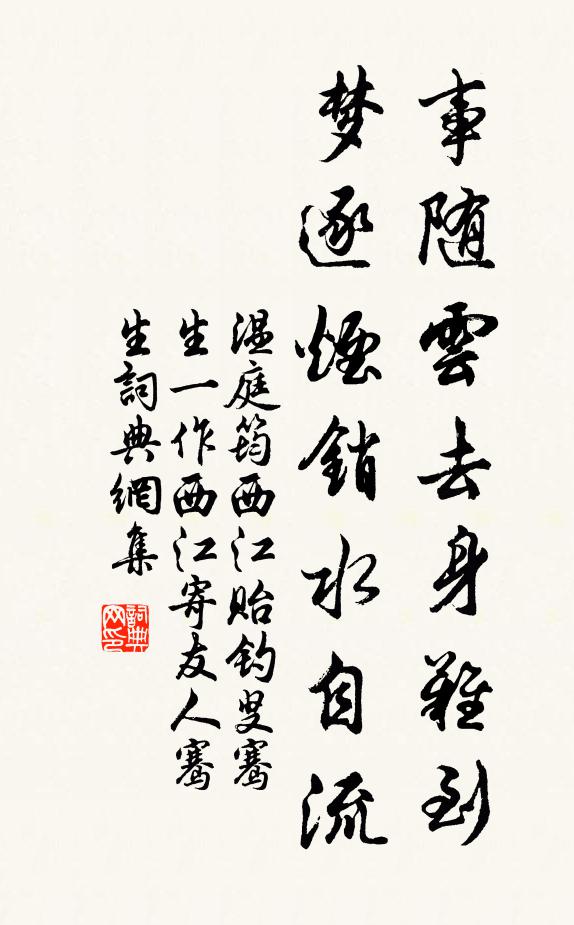 事随雲去身難到
梦逐煙銷水自流
温庭筠西江贻钓叟骞
生一作西江寄友人骞
生詞典網集
詞典网印